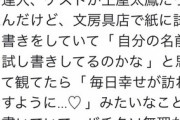 達人、ゲストが土屋太鳳だっ
んだけど、文房具店で紙に試
書きをしていて「自分の名前
試し書きしてるのかな」と思
て観てたら「毎日幸せが訪れ
すように…♡」みたいなこと